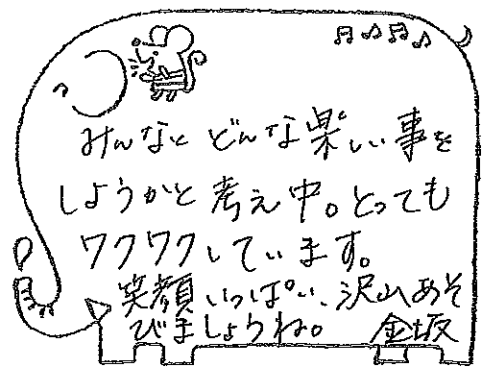 みんなと どんな楽しい事を
しようかと 考え中。とっても
ワクワクしています。
笑顔いっぱい、沢山あそ
びましょうね。 金坂